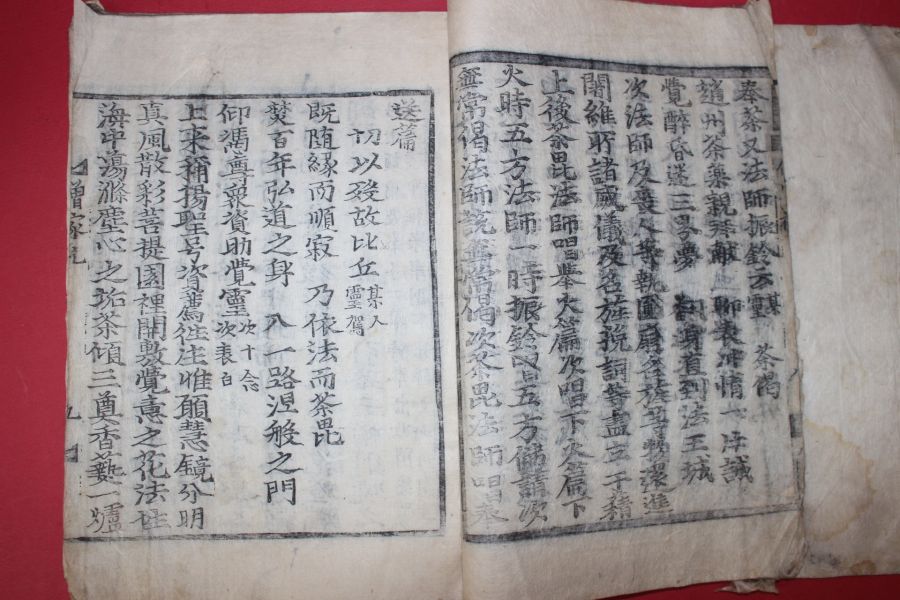 奉茶又法師振鈴云 某靈 茶偈
趙州茶藥親拜獻 聊表冲情一片誠
覺醉昏迷三界夢 翻身直到法王城
次法師及衆人等執圍扇各旌等勢張進
闍維所諸威儀及名旌挽詞等盡立于籍
上後茶毘法師唱擧火篇次唱下火篇下
火時五方法師一時振鈴唱五方佛請次
無常偈法師説無常偈次茶毘法師唱奉
送篇
切以歿故比丘 某人靈駕
既随縁而順寂 乃依法而茶毘
焚百年弘道之身 入一路涅般之門
仰憑尊衆資助覺靈 次十念 次表白
上来稱揚聖号資薦往生惟願慧鏡分明
真風散彩菩提園裡開敷覺意之花法性
海中蕩滌塵心之垢茶傾三奠香爇一爐
僧家
九